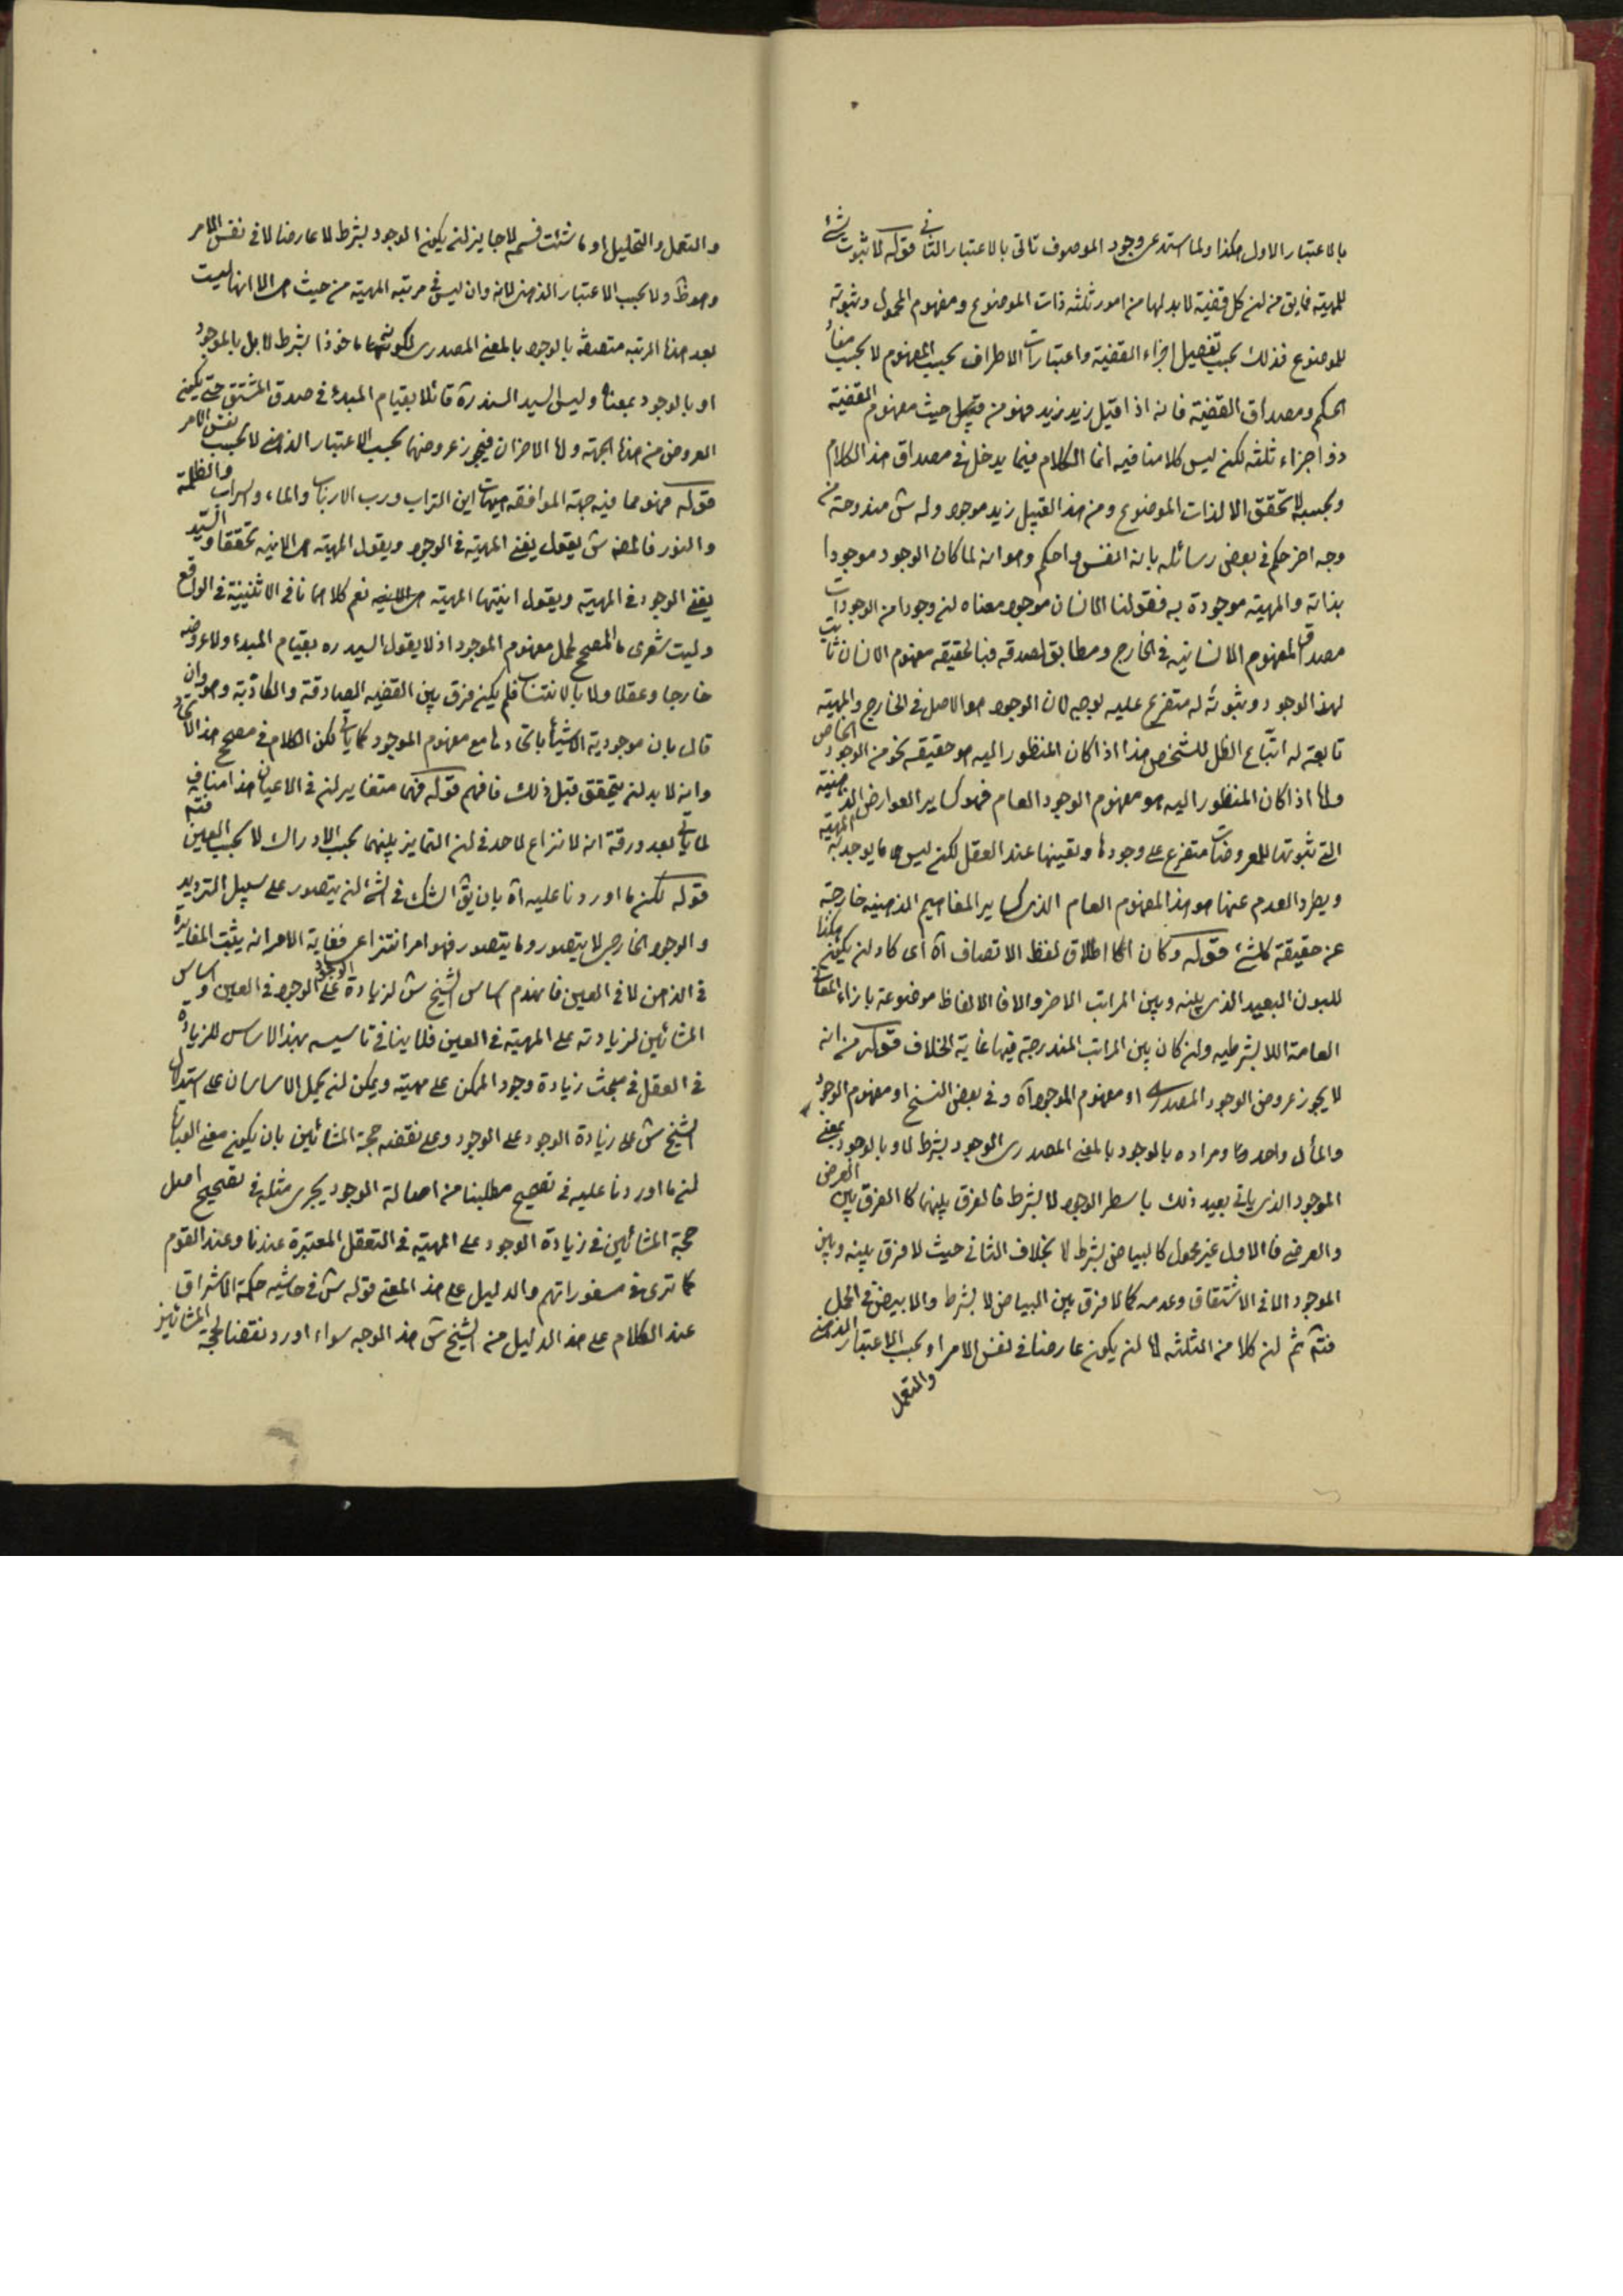 بالاعتبار الاول هكذا ولما استدعى وجود الموصوف تاتى بالاعتبار الثانى قوله لا ثبوت شئ
للمهية فايق من ان كل قضية لابد لها من امور ثلثه ذات الموضوع ومفهوم المحمول وثبوته
للموضوع فذلك بحسب تفصيل اجزاء القضية واعتبارات الاطراف بحسب المفهوم لا بحسب مفاد
الحكم ومصداق القضية فانه اذا قيل زيد زيد فهو من حيث مفهوم القضية
ذو اجزاء ثلثه لكن ليس كلامنا فيه انما الكلام فيما يدخل فى مصداق هذا الكلام
وبحسبه لا تحقق الا لذات الموضوع ومن هذا القبيل زيد موجود وله ش مندوحة من
وجه اخر حكم فى بعض رسائله بانه انفس واحكم وهو انه لما كان الوجود موجودا
بذاته والمهية موجودة به فقولنا الانسان موجود معناه ان وجودا من الوجودات
مصداق لمفهوم الانسانية فى الخارج ومطابق لصدقه فبالحقيقه مفهوم الانسان ثابت
لهذا الوجود وثبوته له متفرع عليه بوجه لان الوجود هو الاصل فى الخارج والمهية
تابعة له اتباع الظل للشخص هذا اذا كان المنظور اليه هو حقيقه نحو من الوجود الخاص
واما اذا كان المنظور اليه هو مفهوم الوجود العام فهو كساير العوارض الذهنية
التى ثبوتها للمعروضات متفرع على وجودها وتعينها عند العقل لكن ليس ما يوجد به المهية
ويطرد العدم عنها هو هذا المفهوم العام الذى كساير المفاهيم الذهنيه خارجة
عن حقيقة كل شئ قوله وكان اطلاق لفظ الاتصاف آه اى كاد ان يكون هكذا
للبون البعيد الذى بينه وبين المراتب الاخر والا فالالفاظ موضوعة بازاء المعانى
العامة اللابشرطيه وان كان بين المراتب المندرجة فيها غاية الخلاف قوله من انه
لا يجوز عروض الوجود المصدرى او مفهوم الموجود آه وفى بعض النسخ او مفهوم الوجود
والمأل واحد ومراده بالموجود بالمعنى المصدرى الوجود بشرط لا وبالوجود بمعنى
الموجود الذى ياتى بعيد ذلك باسطر الوجود لا بشرط فالفرق بينهما كالفرق بين العرض
والعرضى فالاول غير محمول كالبياض بشرط لا بخلاف الثانى حيث لا فرق بينه وبين
الموجود الا فى الاشتقاق وعدمه كما لا فرق بين البياض لا بشرط والابيض فى الحمل
فتم ثم ان كلا من الثلثه اما ان يكون عارضا فى نفس الامر او بحسب الاعتبار الذهنى
والتعمل
والتعمل والتحليل او ما شئت فسمه لا جايز ان يكون الوجود بشرط لا عارضا لا فى نفس الامر
وهو ظ ولا بحسب الاعتبار الذهنى لانه وان ليس فى مرتبه المهية من حيث هى الا انها ليست
بعد هذا المرتبه متصفة بالوجود بالمعنى المصدرى لكونهما ماخوذا بشرط لا بل بالموجود
او بالوجود بمعناه وليس السيد السند ره قائلا بقيام المبدء فى صدق المشتق حتى يكون
العروض من هذه الجهة واما الاخران فيجوز عروضهما بحسب الاعتبار الذهنى لا بحسب نفس الامر
قوله فهو مما فيه جهة الموافقه هيهات اين التراب ورب الارباب والماء والسراب والظلمة
والنور فالمص ش يقول يفنى المهية فى الوجود ويقول المهيه هى الانيه تحققا والسيد
يفنى الوجود فى المهية ويقول انيتها المهيه هى الانيه نعم كلاهما نافى الاثنينية فى الواقع
وليت شعرى ما المصحح لحمل مفهوم الموجود اذ لا يقول السيد ره بقيام المبدء ولا عروضه
خارجا وعقلا ولا بالانتساب فلم يكن فرق بين القضيه الصادقة والكاذبة وهو وان
قال بان موجودية الاشياء باتحادها مع مفهوم الموجود كما ياتى لكن الكلام فى مصحح هذا الاتحاد
وانه لابد ان يتحقق قبل ذلك فافهم قوله فهما متغايران فى الاعيان هذا مناف
لما ياتى بعد ورقة انه لا نزاع لاحد فى ان التمايز بينهما بحسب الادراك لا بحسب العين فتم
قوله لكن ما اوردنا عليه آه بان يق الشك فى الشئ ان يتصور على سبيل الترديد
والوجود الخارجى لا يتصور وما يتصور فهو امر انتزاعى فغاية الامر انه يثبت المغايرة
فى الذهن لا فى العين فانهدم اساس الشيخ ش لزيادة الوجود على الوجود فى العين واساس
المشائين لزيادته على المهية فى العين فلا ينافى تاسيسه بهذا الاساس للزيادة
فى العقل فى مبحث زيادة وجود الممكن على مهيته ويمكن ان يحمل الاساسان على استدلال
الشيخ ش على زيادة الوجود على الوجود وعلى نقضه حجة المشائين بان يكون معنى العبارة
ان ما اوردنا عليه فى تصحيح مطلبنا من اصالة الوجود يجرى مثله فى تصحيح اصل
حجة المشائين فى زيادة الوجود على المهية فى التعقل المعتبرة عندنا وعند القوم
كما ترى فى مسفوراتهم والدليل على هذا المعنى قوله ش فى حاشيه حكمة الاشراق
عند الكلام على هذا الدليل من الشيخ ش هذا الوجه سواء اورد نقضا لحجة المشائين